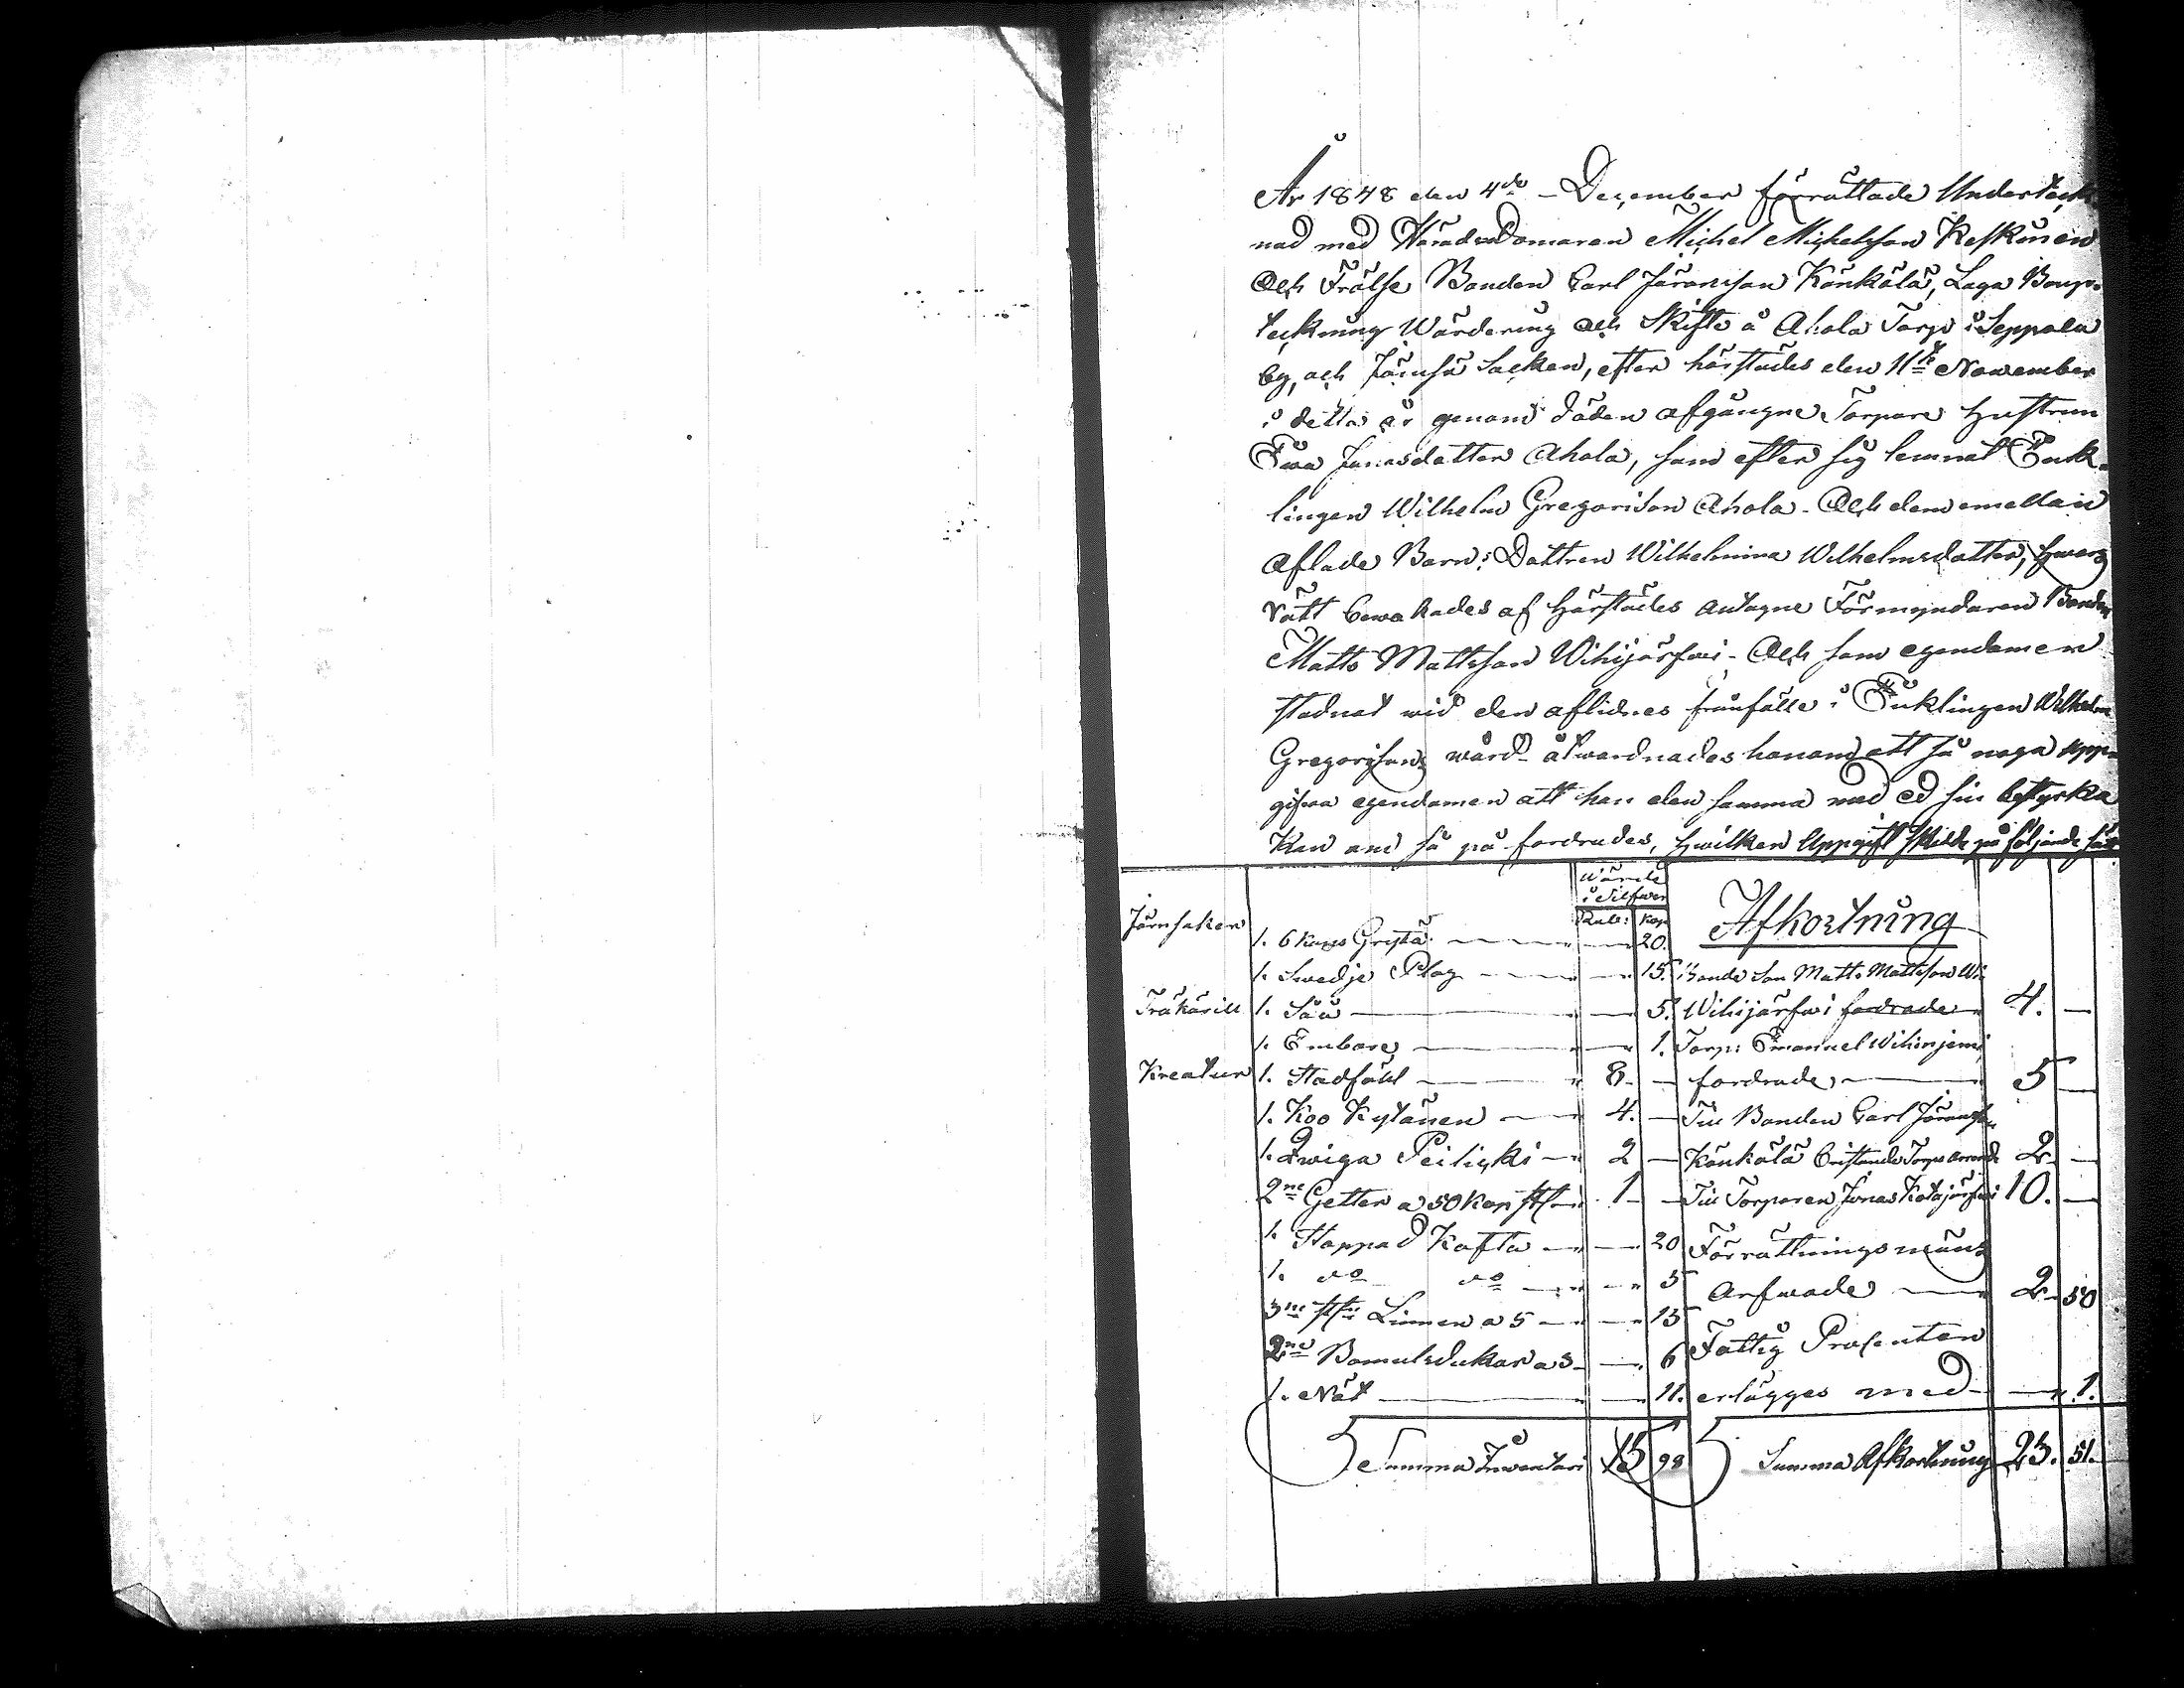 År 1848 den 4de December förrättade Underteck-
nad med HäradsDomaren Michel Michelsson Keskinen
Och Frälse Bonden Carl Jöransson Könkölä, Laga Boup-
teckning Wärdering och Skifte å Ahola Torp i Seppola
by, och Jämsä Socken, efter härstädes den 11te November
i detta år genom döden afgångne Torpare hustrun
Ewa Jonasdotter Ahola, som efter sig lemnat Enk-
lingen Wilhelm Gregorisson Ahola. Och dem emellan
Aflade Barn: Dottren Wilhelmina Wilhelmsdotter, hwars
Rätt bewakades af härstädes antagne Förmyndaren Bonden
Matts Mattsson Wihijärfwi. Och som egendomen
stadnat wid den aflidnes frånfälle i Enklingen Wilhelm
Gregorissons wård åtwardnades honom att så noga upp-
gifwa egendomen att han den samma med ed sin bestyrka
Kan om så på fordrades, hwilken Uppgift skedde på följande sätt
Wärde
i Silfwer
Rub: Kop
Afkortning
Järnsaker 1. 6 kans Gryta 20.
1. Swedje Plog 15. Bonde Son Matts Mattsson Wi
Träkärill 1. Såå 5. Wihijärfwi fordrade 4. —
1. Embare 1. Torp: Emanuel Wihinjemi
Kreatur 1. Stodföhl 8. — fordrade 5 —
1. Koo Kytönen 4. — Till Bonden Carl Jöransson
1. Qwiga 2 — Könkölä Bristande Torps arrende 2 —
2ne Getter a 50 Kop st 1 — Till Torparen Jonas Kotajärfwi 10. —
1. Stoppad Kofta 20 Förrättningsmäns
1. do do 5 Arfwode 2 50
3ne st: Linnen a 5 15 Fattig Procenten
2ne Bomulsdukar a 3 6
1. Nöt 11. erlägges med 1.
Summa Inventari 15 98 Summa Afkortning 23. 51.